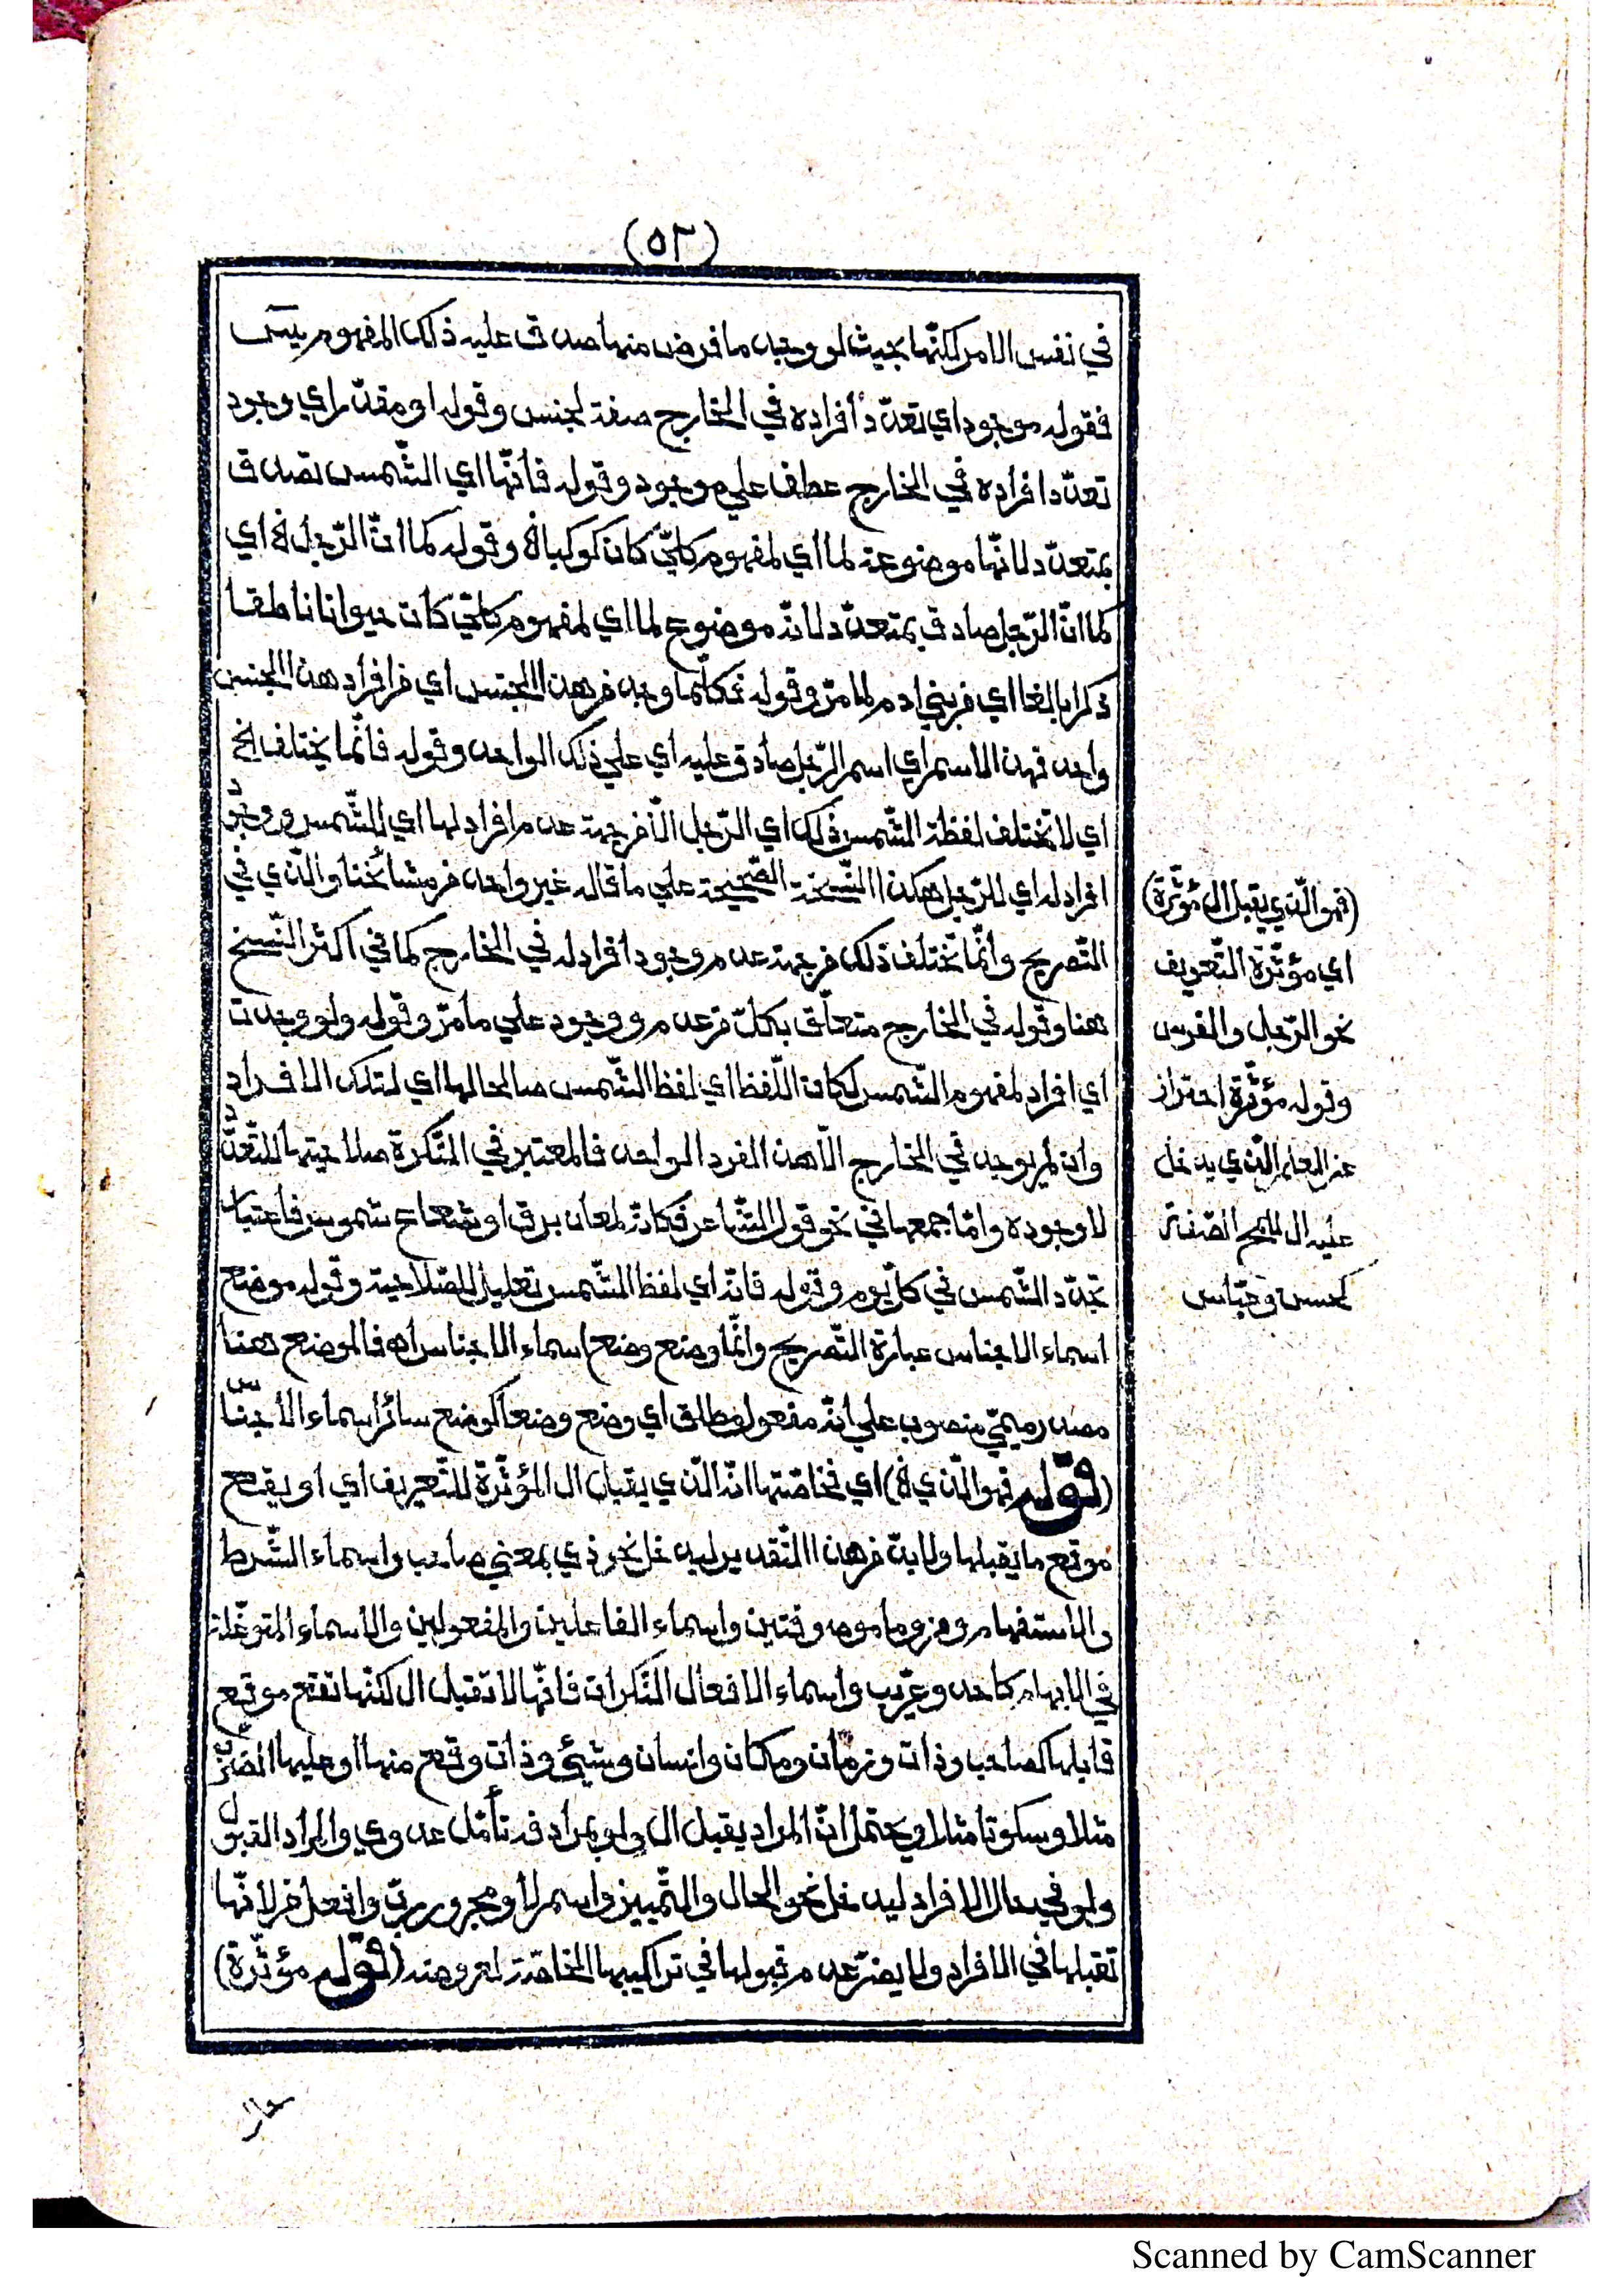 (٥٢)
في نفس الامر لكنّها بحيث لو وجد ما فرض منها صدق عليه ذلك المفهوم
فقوله موجود اي تعدّد أفراده في الخارج صفة لجنس وقوله او مقدّر اي وجود
تعدّد افراده في الخارج عطف علي موجود وقوله فانّها اي الشّمس تصدق
بمتعدّد لانّها موضوعة لما اي لمفهوم كلّيّ كان كوكبا اﻫ وقوله كما انّ الرّجل اﻫ اي
كما انّ الرّجل صادق بمتعدّد لانّه موضوع لما اي لمفهوم كلّيّ كان حيوانا ناطقا
ذكرا بالغا اي من بني ادم لما مرّ وقوله فكلّما وجد من هذا الجنس اي من افراد هذا الجنس
واحد فهذا الاسم اي اسم الرّجل صادق عليه اي علي ذلك الواحد وقوله فانّما يختلف الخ
اي لا تختلف لفظة الشّمس ذلك اي الرّجل الّا من جهة عدم افراد لها اي للشّمس ووجود
افراد له اي للرّجل هكذا النّسخة الصّحيحة علي ما قاله غير واحد من مشائخنا والّذي في
التّصريح وانّما تختلف ذلك من جهة عدم وجود أفراد له في الخارج كما في اكثر النّسخ
هنا وقوله في الخارج متعلّق بكلّ من عدم ووجود علي ما مرّ وقوله ولو وجدت
اي افراد لمفهوم الشّمس لكان اللّفظ اي لفظ الشّمس صالحا لها اي لتلك الافراد
وان لم يوجد في الخارج الّا هذا الفرد الواحد فالمعتبر في النّكرة صلاحيتها للتّعدّد
لا وجوده وامّا جمعها في نحو قول الشّاعر فكانّه لمعان برق او شعاع شموس فباعتبار
تجدّد الشّمس في كلّ يوم وقوله فانّه اي لفظ الشّمس تعليل للصّلاحية وقوله موضع
اسماء الاجناس عبارة التّصريح وانّما وضع وضع اسماء الاجناس اﻫ فالموضع هنا
مصدر ميميّ منصوب علي انّه مفعول مطلق اي وضع وضعا كوضع سائر اسماء الأجناس
(قوله فهو الّذي اﻫ) اي فخاصّتها انّه الّذي يقبل ال المؤثّرة للتّعريف اي او يقع
موقع ما يقبلها ولا بدّ من هذا التّقدير ليدخل نحو ذي بمعني صاحب واسماء الشّرط
والاستفهام ومن وما موصوفتين واسماء الفاعلين والمفعولين والاسماء المتوغّلة
في الابهام كاحد وعريب واسماء الافعال النّكرات فانّها لا تقبل ال لكنّها تقع موقع
قابلها كصاحب وذات وزمان ومكان وانسان وشيئ وذات وقع منها او عليها الضّرب
مثلا وسكوتا مثلا ويحتمل انّ المراد يقبل ال ولو بمرادفه تأمّل عدوي والمراد القبول
ولو في حال الافراد ليدخل نحو الحال والتّمييز واسم لا ومجرور ربّ وافعل من لانّها
تقبلها في الافراد ولا يضرّ عدم قبولها في تراكيبها الخاصّة لعروضه (قوله مؤثّرة)
(فهو الّذي يقبل ال مؤثّرة)
اي مؤثّرة التّعريف
نحو الرّجل والفرس
وقوله مؤثّرة احتراز
عن العلم الّذي يدخل
عليه ال للمح الصّفة
كحسن وعبّاس
Scanned by CamScanner